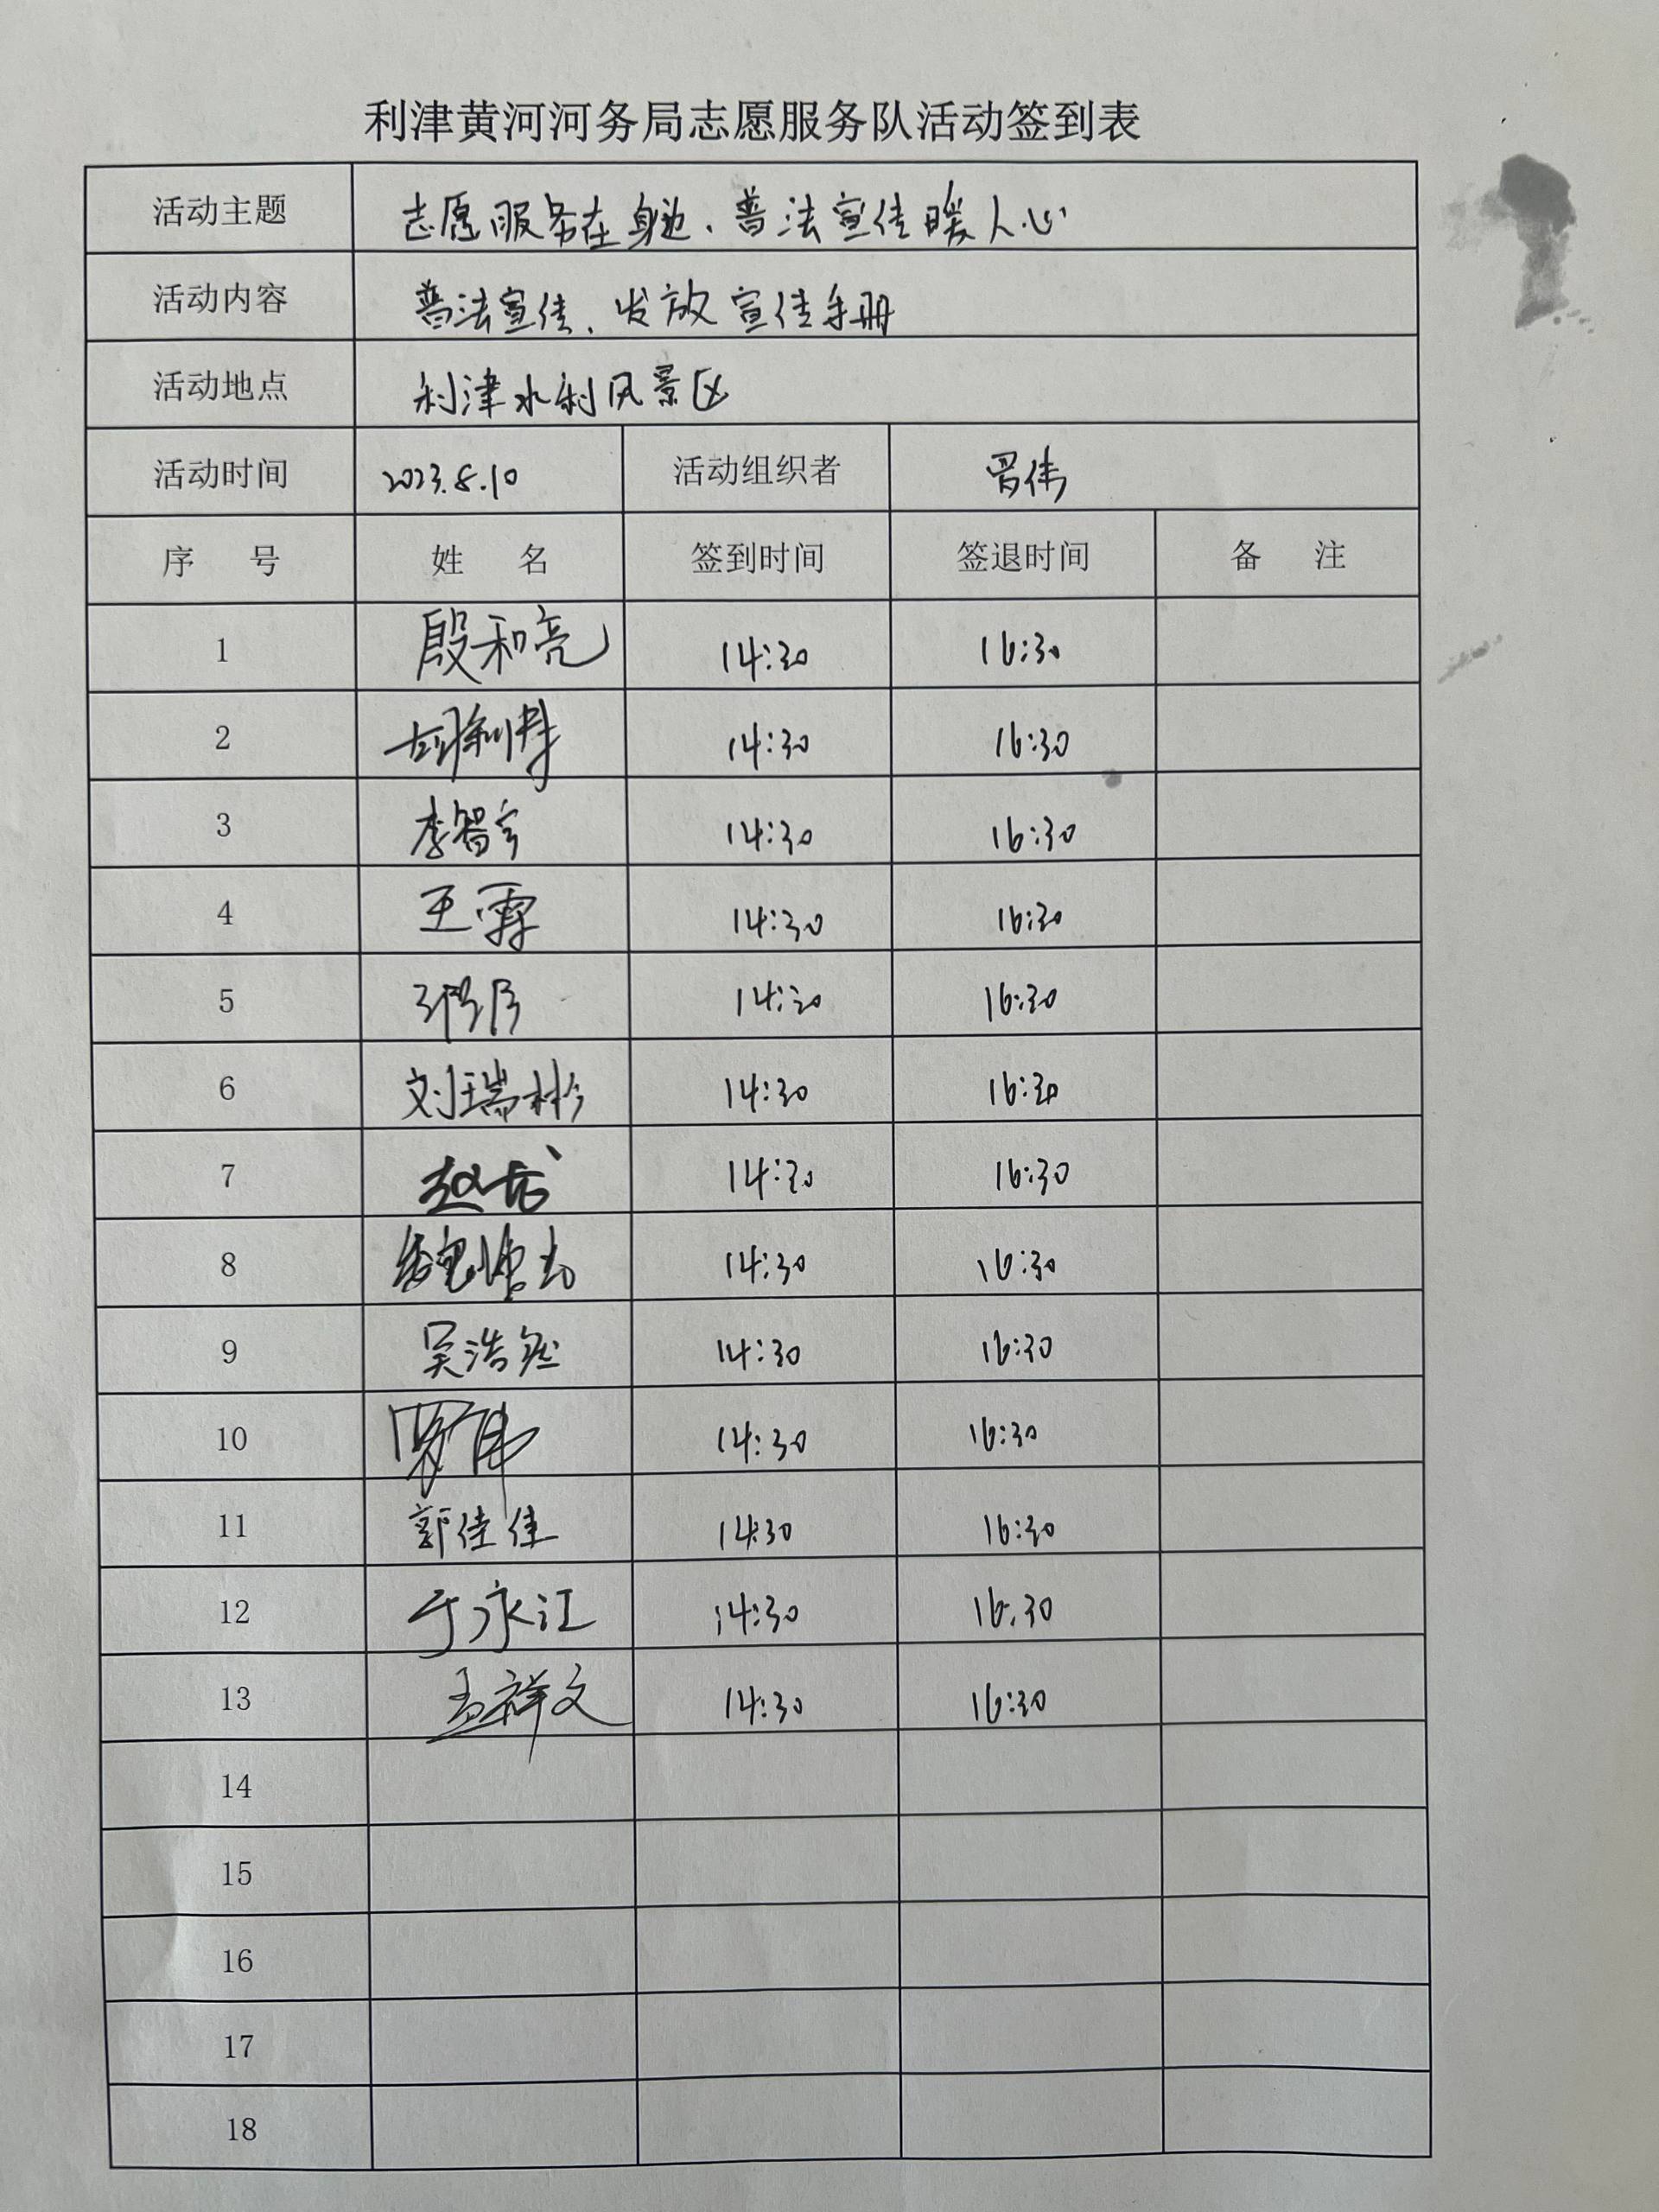 利津黄河河务局志愿服务队活动签到表
活动主题 志愿服务在身边、普法宣传暖人心
活动内容 普法宣传、发放宣传手册
活动地点 利津水利风景区
活动时间 2023.8.10 活动组织者 罗伟
序 号 姓 名 签到时间 签退时间 备 注
1 殷和亮 14:30 16:30
2 14:30 16:30
3 李智宇 14:30 16:30
4 王霞 14:30 16:30
5 14:30 16:30
6 刘瑞彬 14:30 16:30
7 赵龙 14:30 16:30
8 14:30 16:30
9 吴浩然 14:30 16:30
10 罗伟 14:30 16:30
11 郭佳佳 14:30 16:30
12 于永江 14:30 16:30
13 孟祥文 14:30 16:30
14
15
16
17
18